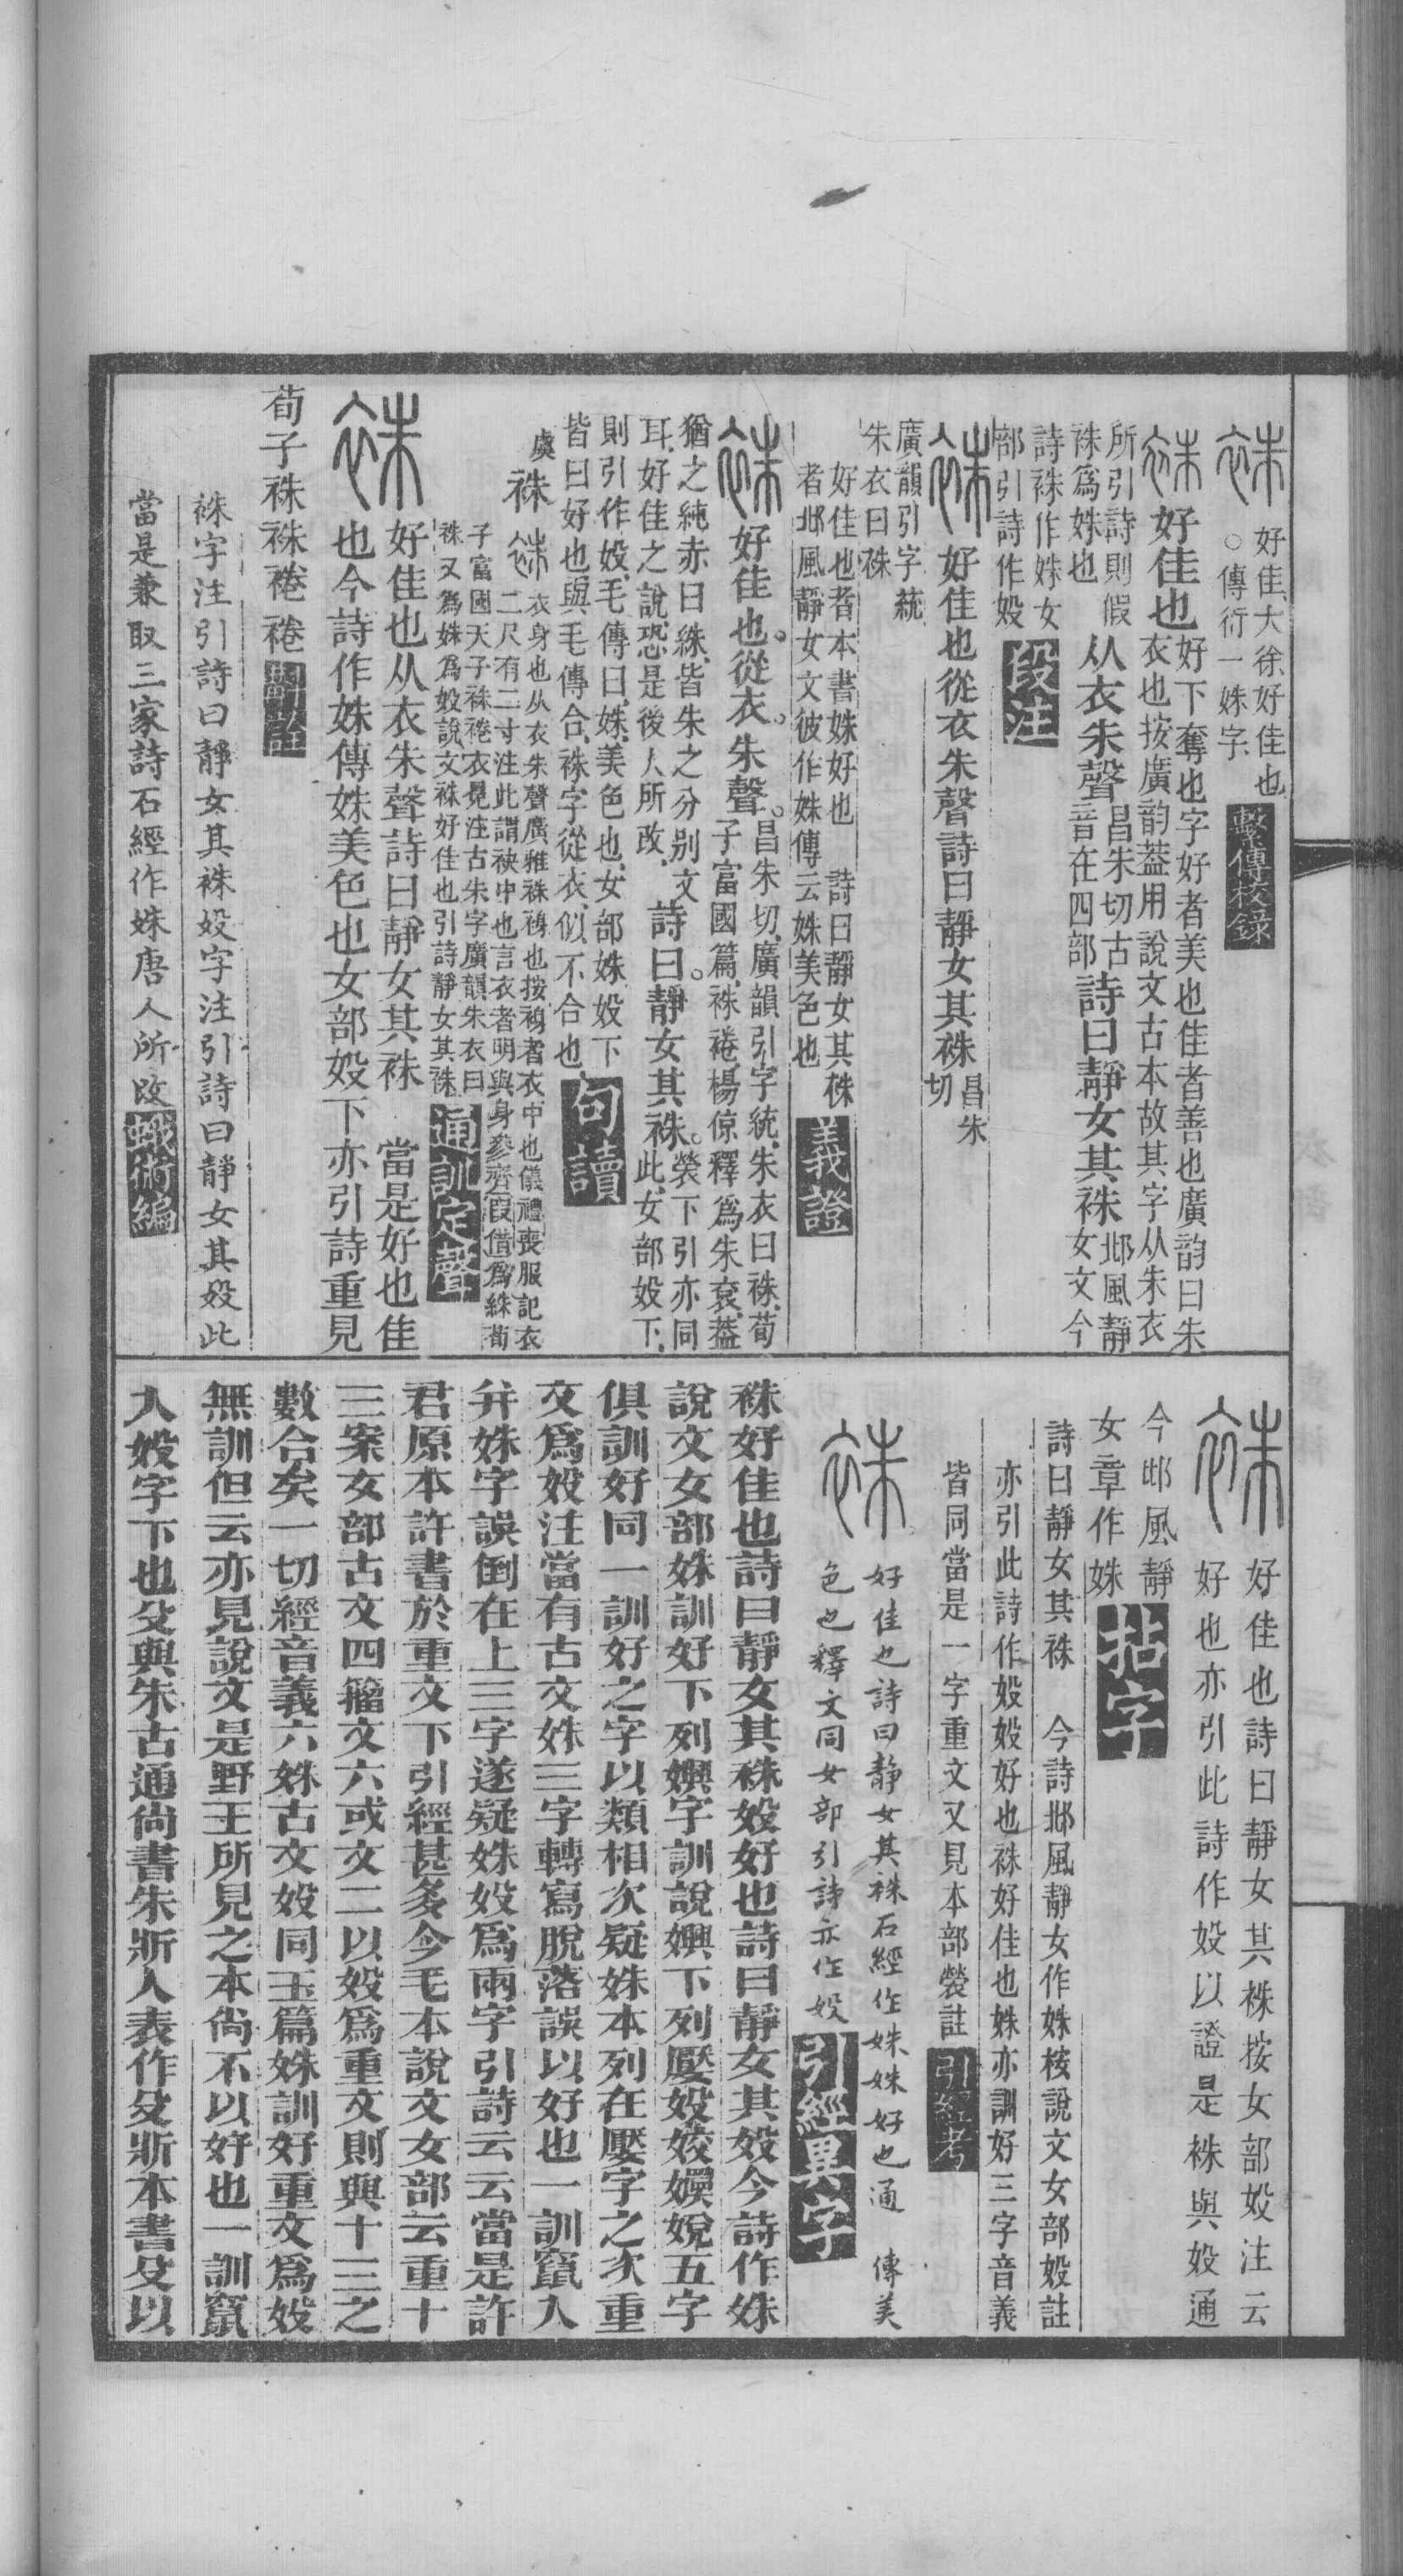 袾 好佳大徐好佳也
○傳衍一姝字
繫傳校錄
袾 好佳也
好下奪也字好者美也佳者善也廣韵曰朱
衣也按廣韵葢用說文古本故其字从朱衣
所引詩則假
袾爲姝也
从衣朱聲
昌朱切古
音在四部
詩曰靜女其袾
邶風靜
女文今
詩袾作姝女
部引詩作㛟
段注
袾 好佳也從衣朱聲詩曰靜女其袾
昌朱
切
廣韻引字統
朱衣曰袾
好佳也者本書姝好也　詩曰靜女其袾
者邶風靜女文彼作姝傳云姝美色也
義證
袾 好佳也。從衣。朱聲。
昌朱切、廣韻引字統、朱衣曰袾、荀
子富國篇、袾裷、楊倞釋爲朱袞、葢
猶之純赤曰絑、皆朱之分别文
耳、好佳之說、恐是後人所改、
詩曰。靜女其袾。
褮下引亦同
此、女部㛟下、
則引作㛟、毛傳曰、姝、美色也、女部姝㛟下
皆曰好也、與毛傳合、袾字從衣、似不合也、
句讀
虞
袾 袾
衣身也从衣朱聲廣雅袾裑也按裑者衣中也儀禮喪服記衣
二尺有二寸注此謂袂中也言衣者明與身參齊叚借爲絑荀
子富國天子袾裷衣冕注古朱字廣韻朱衣曰
袾又爲姝爲㛟說文袾好佳也引詩靜女其袾
通訓定聲
袾 好佳也从衣朱聲詩曰靜女其袾　當是好也佳
也今詩作姝傳姝美色也女部㛟下亦引詩重見
荀子袾袾裷裷
斠詮
袾字注引詩曰靜女其袾㛟字注引詩曰靜女其㛟此
當是兼取三家詩石經作姝唐人所改
蛾術編
袾 好佳也詩曰靜女其袾按女部㛟注云
好也亦引此詩作㛟以證是袾與㛟通
今邶風靜
女章作姝
拈字
詩曰靜女其袾　今詩邶風靜女作姝桉說文女部㛟註
亦引此詩作㛟㛟好也袾好佳也姝亦訓好三字音義
皆同當是一字重文又見本部褮註
引經考
袾 好佳也詩曰靜女其袾石經作姝姝好也通　傳美
色也釋文同女部引詩亦作㛟
引經異字
袾好佳也詩曰靜女其袾㛟好也詩曰靜女其㛟今詩作姝
說文女部姝訓好下列嬹字訓說嬹下列嬮㛟姣嬽娧五字
俱訓好同一訓好之字以類相次疑姝本列在嬮字之次重
文爲㛟注當有古文姝三字轉寫脫落誤以好也一訓竄入
弁姝字誤倒在上三字遂疑姝㛟爲兩字引詩云云當是許
君原本許書於重文下引經甚多今毛本說文女部云重十
三案女部古文四籀文六或文二以㛟爲重文則與十三之
數合矣一切經音義六姝古文㛟同玉篇姝訓好重文爲㛟
無訓但云亦見說文是野王所見之本尙不以好也一訓竄
入㛟字下也殳與朱古通尙書朱斨人表作殳斨本書殳以